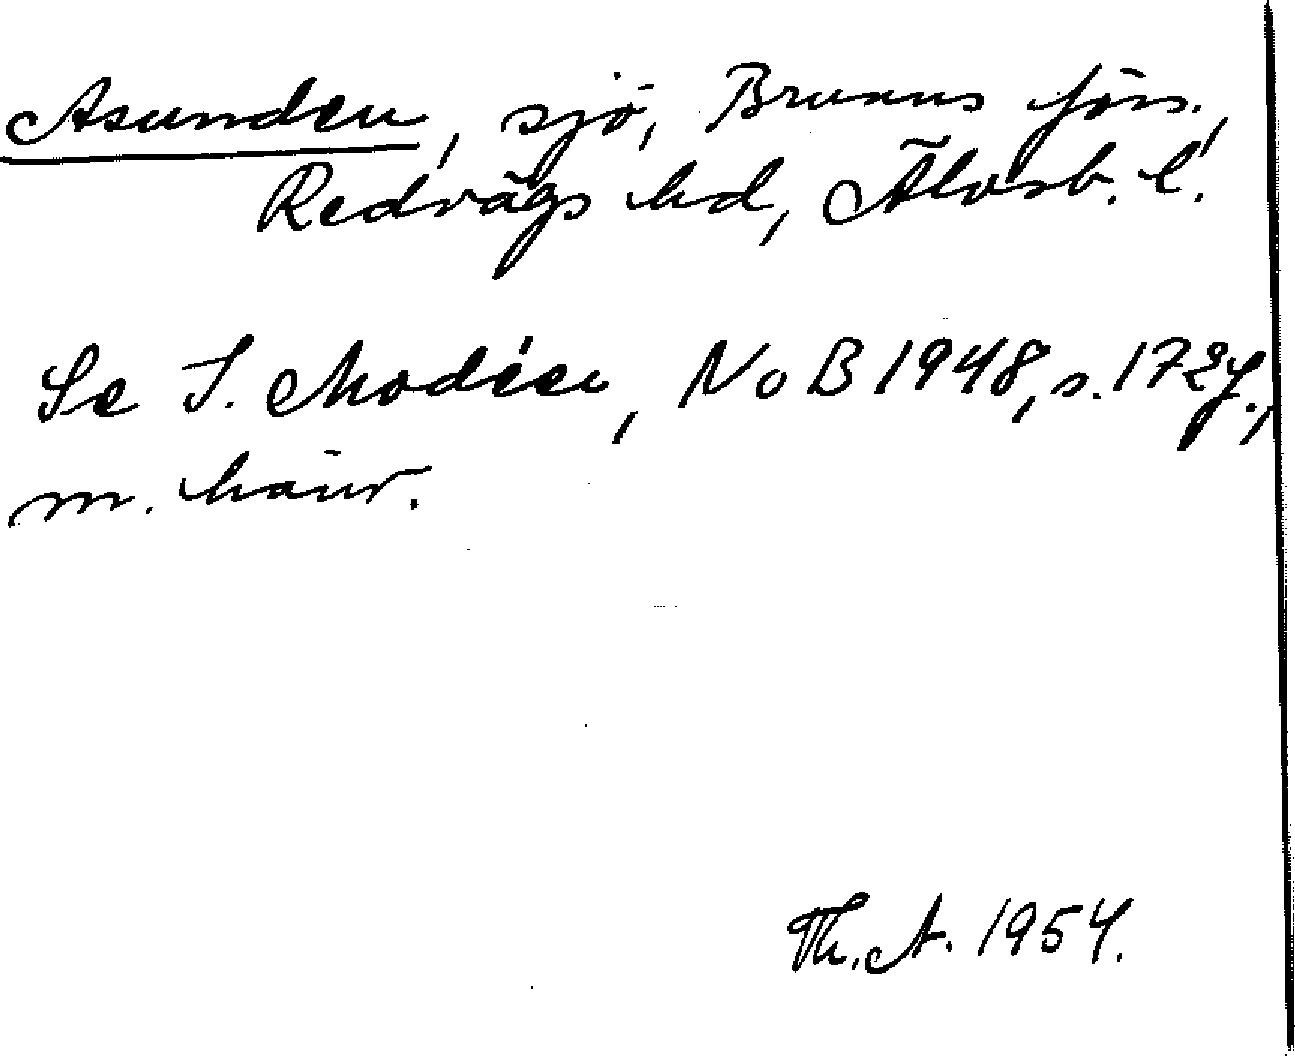 Asunden, sjö, Brunns förs.,
Redvägs hd, Älvsb. l.
Se I. Modéer, NoB 1948, s. 172 f.,
m. hänv.
Th. A. 1954.